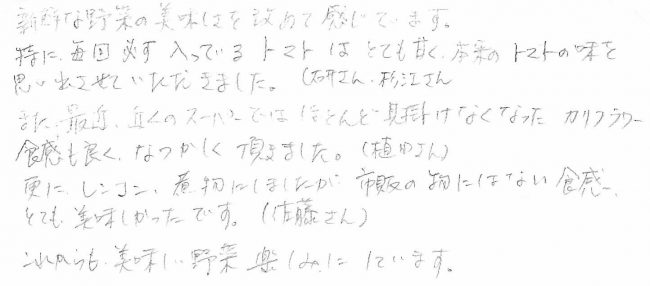 新鮮な野菜の美味しさを改めて感じています。
特に、毎回必ず入っているトマトはとても甘く、本来のトマトの味を
思い出させていただきました。(石井さん、杉江さん
また、最近、近くのスーパーではほとんど見掛けなくなったカリフラワー
食感も良く、なつかしく頂きました。(植田さん)
更に、レンコン、煮物にしましたが市販の物にはない食感で、
とても美味しかったです。(佐藤さん)
これからも、美味しい野菜楽しみにしています。